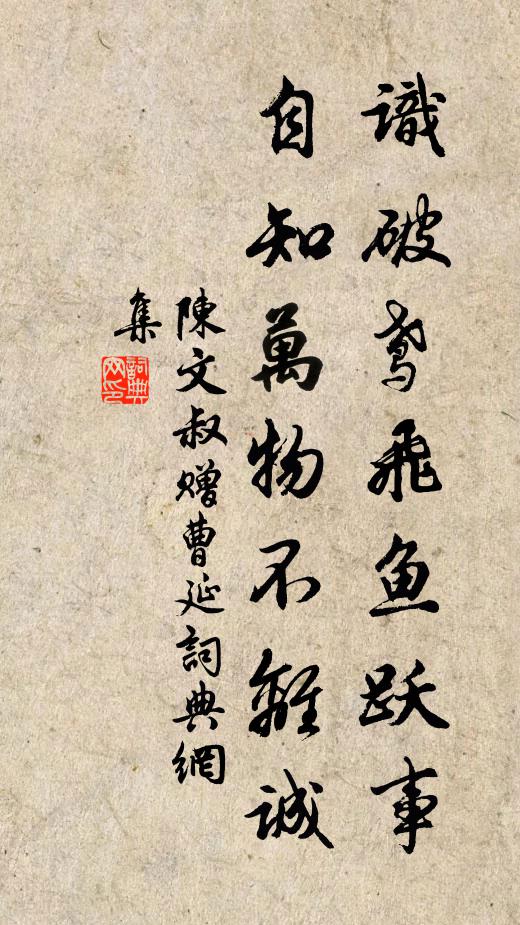 識破鳶飛魚跃事
自知萬物不離誠
陳文叔贈曹延詞典網
集
詞典
网印